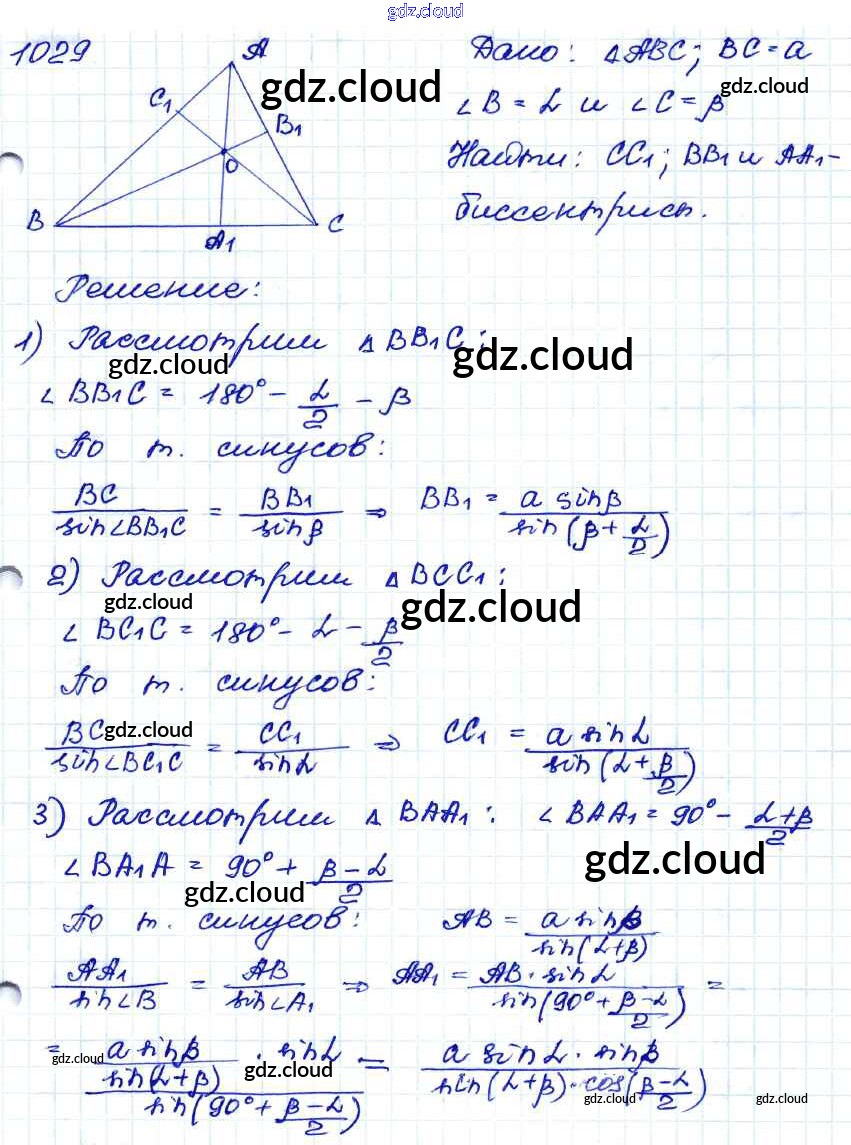 gdz.cloud
1029
A
C₁
B₁
O
B
A₁
C
Дано: △ABC; BC = a
∠B = α и ∠C = β
Найти: CC₁; BB₁ и AA₁ -
биссектрисы.
gdz.cloud
gdz.cloud
Решение:
1) Рассмотрим △BB₁C:
gdz.cloud
gdz.cloud
∠BB₁C = 180° - α/2 - β
По т. синусов:
BC/sin∠BB₁C = BB₁/sinβ ⇒ BB₁ = a sinβ/sin(β + α/2)
2) Рассмотрим △BCC₁:
gdz.cloud
gdz.cloud
∠BC₁C = 180° - α - β/2
По т. синусов:
BC/sin∠BC₁C = CC₁/sinα ⇒ CC₁ = a sinα/sin(α + β/2)
gdz.cloud
3) Рассмотрим △BAA₁: ∠BAA₁ = 90° - (α+β)/2
∠BA₁A = 90° + (β-α)/2
gdz.cloud
gdz.cloud
По т. синусов: AB = a sinβ/sin(α+β)
AA₁/sin∠B = AB/sin∠A₁ ⇒ AA₁ = AB · sinα/sin(90° + (β-α)/2) =
= (a sinβ/sin(α+β) · sinα)/sin(90° + (β-α)/2) = a sinα · sinβ/(sin(α+β) · cos((β-α)/2))
gdz.cloud
gdz.cloud
gdz.cloud
gdz.cloud